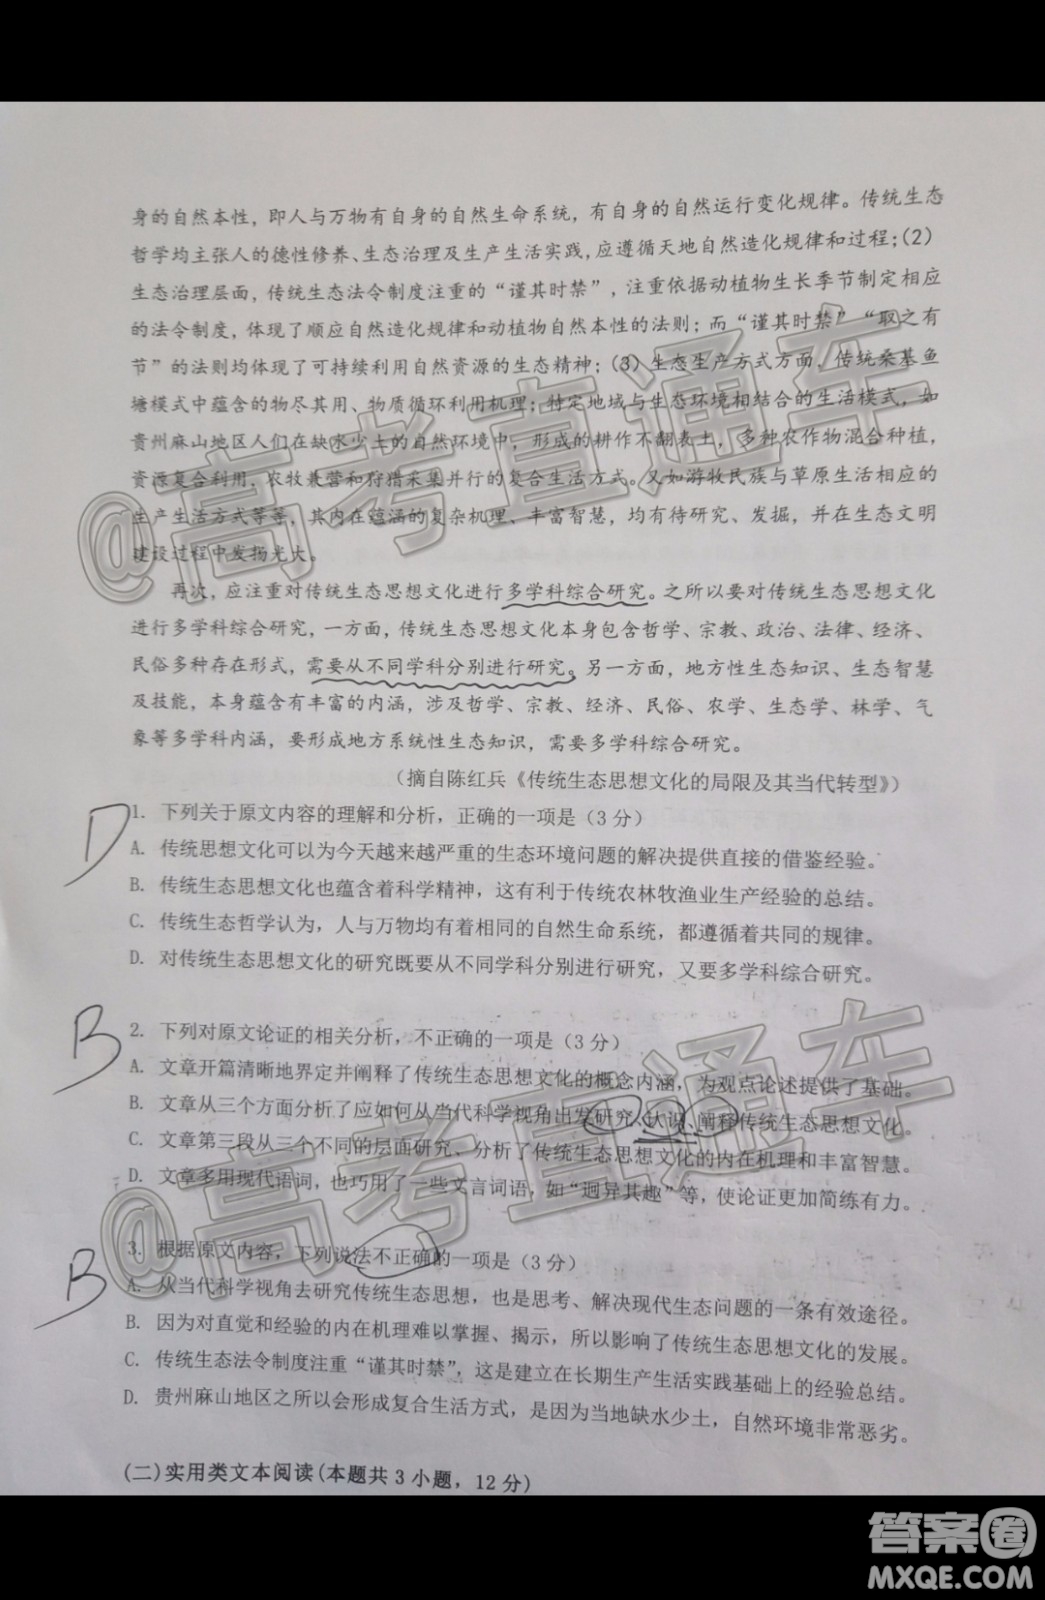 身的自然本性，即人与万物有自身的自然生命系统，有自身的自然运行变化规律。传统生态
哲学均主张人的德性修养、生态治理及生产生活实践，应遵循天地自然造化规律和过程；(2)
生态治理层面，传统生态法令制度注重的“谨其时禁”，注重依据动植物生长季节制定相应
的法令制度，体现了顺应自然造化规律和动植物自然本性的法则；而“谨其时禁”“取之有
节”的法则均体现了可持续利用自然资源的生态精神；(3)生态生产方式方面，传统桑基鱼
塘模式中蕴含的物尽其用、物质循环利用机理；特定地域与生态环境相结合的生活模式，如
贵州麻山地区人们在缺水少土的自然环境中，形成的耕作不翻表土，多种农作物混合种植，
资源复合利用，农牧兼营和狩猎采集并行的复合生活方式。又如游牧民族与草原生活相应的
生产生活方式等等，其内在蕴涵的复杂机理、丰富智慧，均有待研究、发掘，并在生态文明
建设过程中发扬光大。
再次，应注重对传统生态思想文化进行多学科综合研究。之所以要对传统生态思想文化
进行多学科综合研究，一方面，传统生态思想文化本身包含哲学、宗教、政治、法律、经济、
民俗多种存在形式，需要从不同学科分别进行研究。另一方面，地方性生态知识、生态智慧
及技能，本身蕴含有丰富的内涵，涉及哲学、宗教、经济、民俗、农学、生态学、林学、气
象等多学科内涵，要形成地方系统性生态知识，需要多学科综合研究。
（摘自陈红兵《传统生态思想文化的局限及其当代转型》）
D 1. 下列关于原文内容的理解和分析，正确的一项是（3 分）
A. 传统思想文化可以为今天越来越严重的生态环境问题的解决提供直接的借鉴经验。
B. 传统生态思想文化也蕴含着科学精神，这有利于传统农林牧渔业生产经验的总结。
C. 传统生态哲学认为，人与万物均有着相同的自然生命系统，都遵循着共同的规律。
D. 对传统生态思想文化的研究既要从不同学科分别进行研究，又要多学科综合研究。
B 2. 下列对原文论证的相关分析，不正确的一项是（3 分）
A. 文章开篇清晰地界定并阐释了传统生态思想文化的概念内涵，为观点论述提供了基础。
B. 文章从三个方面分析了应如何从当代科学视角出发研究、认识、阐释传统生态思想文化。
C. 文章第三段从三个不同的层面研究、分析了传统生态思想文化的内在机理和丰富智慧。
D. 文章多用现代语词，也巧用了一些文言词语，如“迥异其趣”等，使论证更加简练有力。
B 3. 根据原文内容，下列说法不正确的一项是（3 分）
A. 从当代科学视角去研究传统生态思想，也是思考、解决现代生态问题的一条有效途径。
B. 因为对直觉和经验的内在机理难以掌握、揭示，所以影响了传统生态思想文化的发展。
C. 传统生态法令制度注重“谨其时禁”，这是建立在长期生产生活实践基础上的经验总结。
D. 贵州麻山地区之所以会形成复合生活方式，是因为当地缺水少土，自然环境非常恶劣。
（二）实用类文本阅读（本题共 3 小题，12 分）
@高考直通车
@高考直通车
答案圈
MXQE.COM